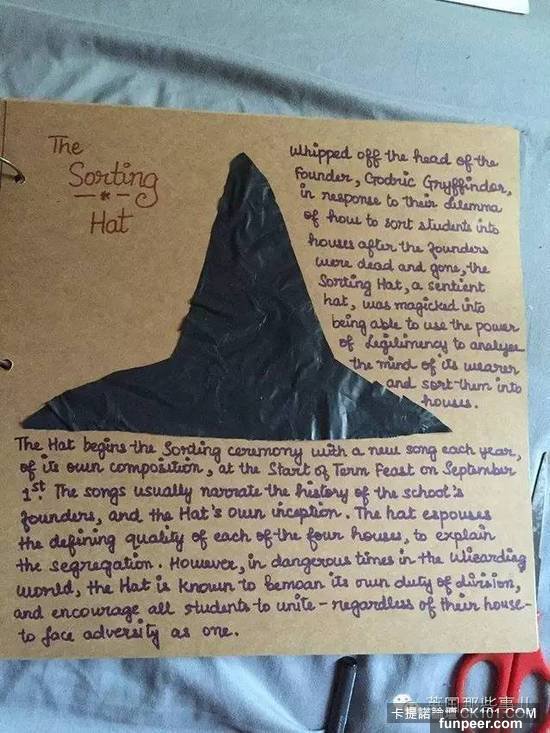 The
Sorting
Hat
Whipped off the head of the
Founder, Godric Gryffindor,
in response to their dilemma
of how to sort students into
houses after the founders
were dead and gone, the
Sorting Hat, a sentient
hat, was magicked into
being able to use the power
of Legilimency to analyse
the mind of its wearer
and sort them into
houses.
The Hat begins the Sording ceremony with a new song each year,
of its own composition, at the Start of Term Feast on September
1st. The songs usually narrate the history of the school's
founders, and the Hat's own inception. The hat espouses
the defining quality of each of the four houses, to explain
the segregation. However, in dangerous times in the Wizarding
World, the Hat is known to bemoan its own duty of division,
and encourage all students to unite - regardless of their house -
to face adversity as one.
英国那些事儿
卡提諾論壇CK101.COM
funpeer.com